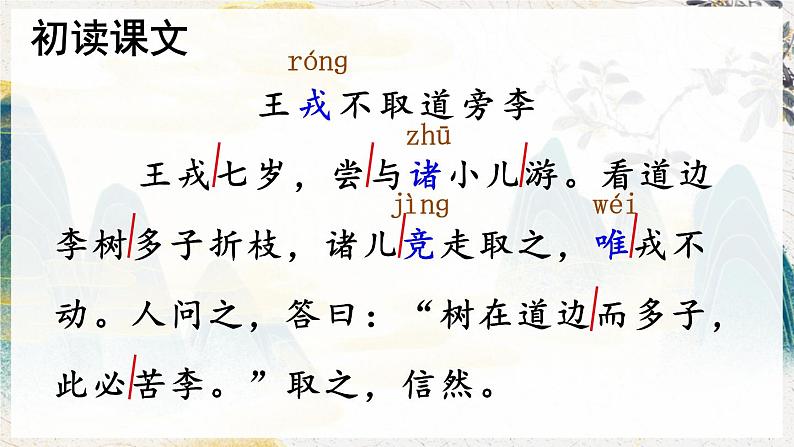 初读课文
róng
王戎不取道旁李
zhū
王戎七岁，尝与诸小儿游。看道边
jìng wéi
李树多子折枝，诸儿竞走取之，唯戎不
动。人问之，答曰：“树在道边而多子，
此必苦李。”取之，信然。